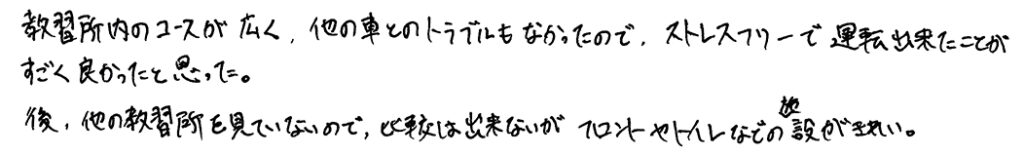 教習所内のコースが広く、他の車とのトラブルもなかったので、ストレスフリーで運転出来たことが
すごく良かったと思った。
後、他の教習所を見ていないので、比較は出来ないがフロントやトイレなどの施設がきれい。